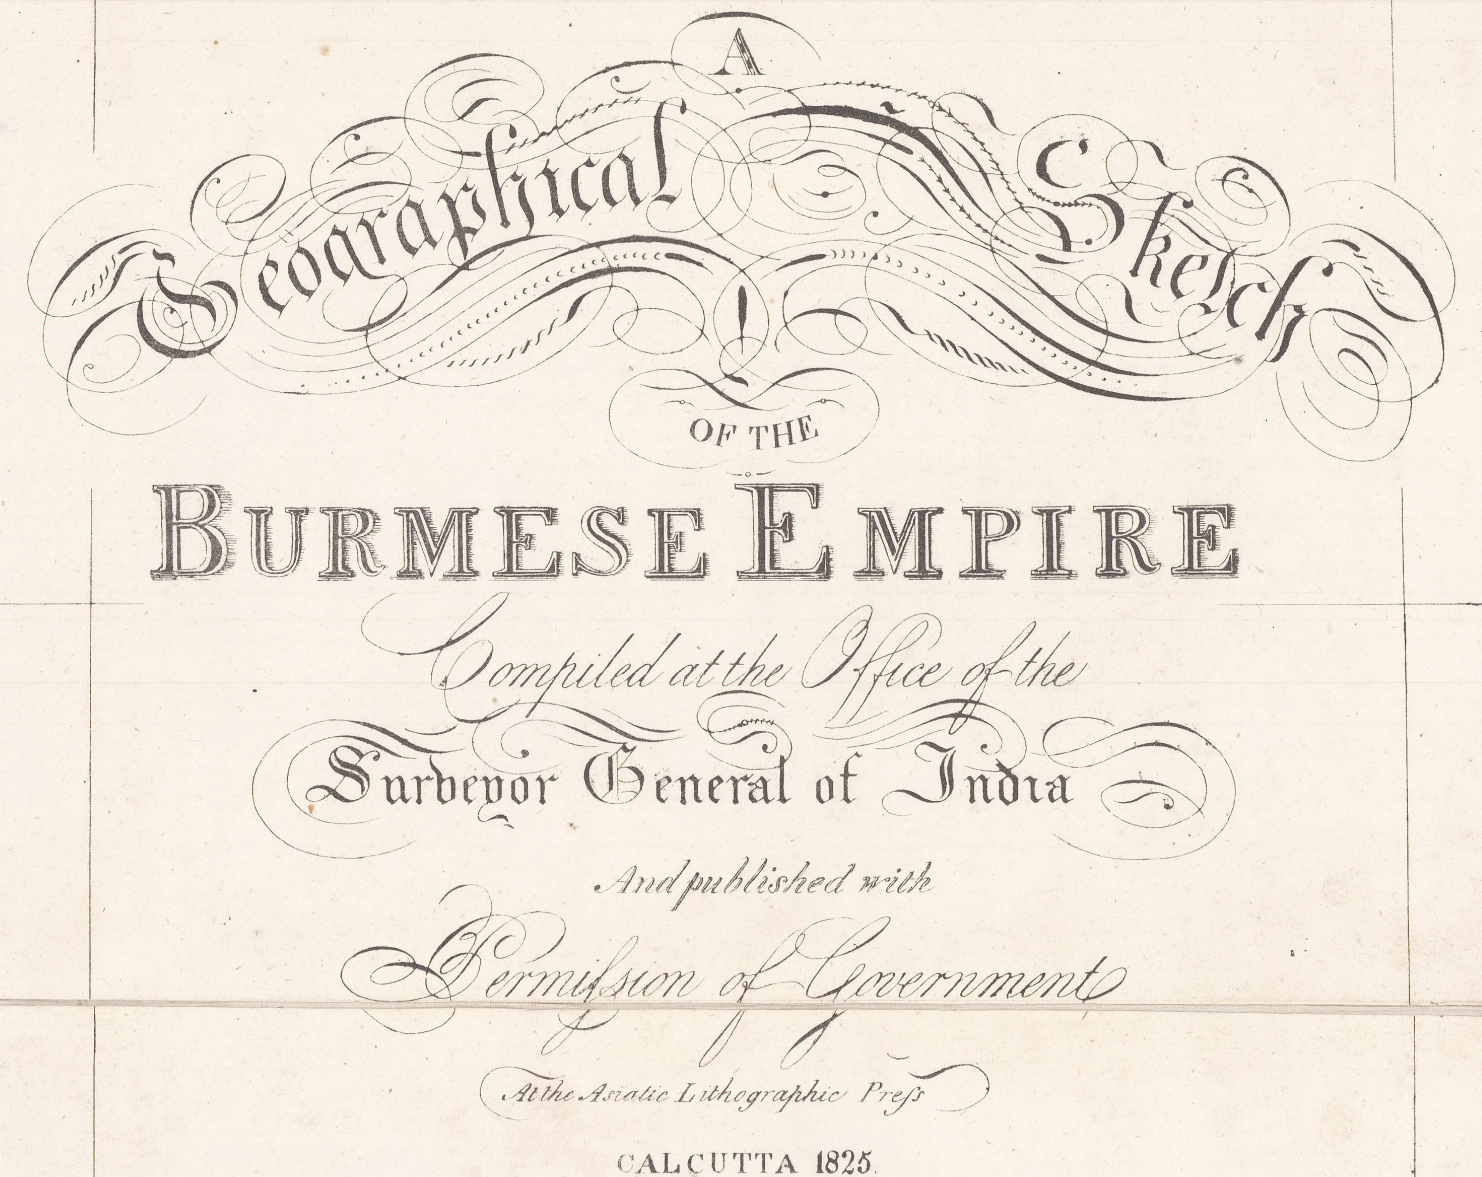 A
Geographical Sketch
OF THE
BURMESE EMPIRE
Compiled at the Office of the
Surveyor General of India
And published with
Permiſsion of Government
At the Asiatic Lithographic Preſs
CALCUTTA 1825.